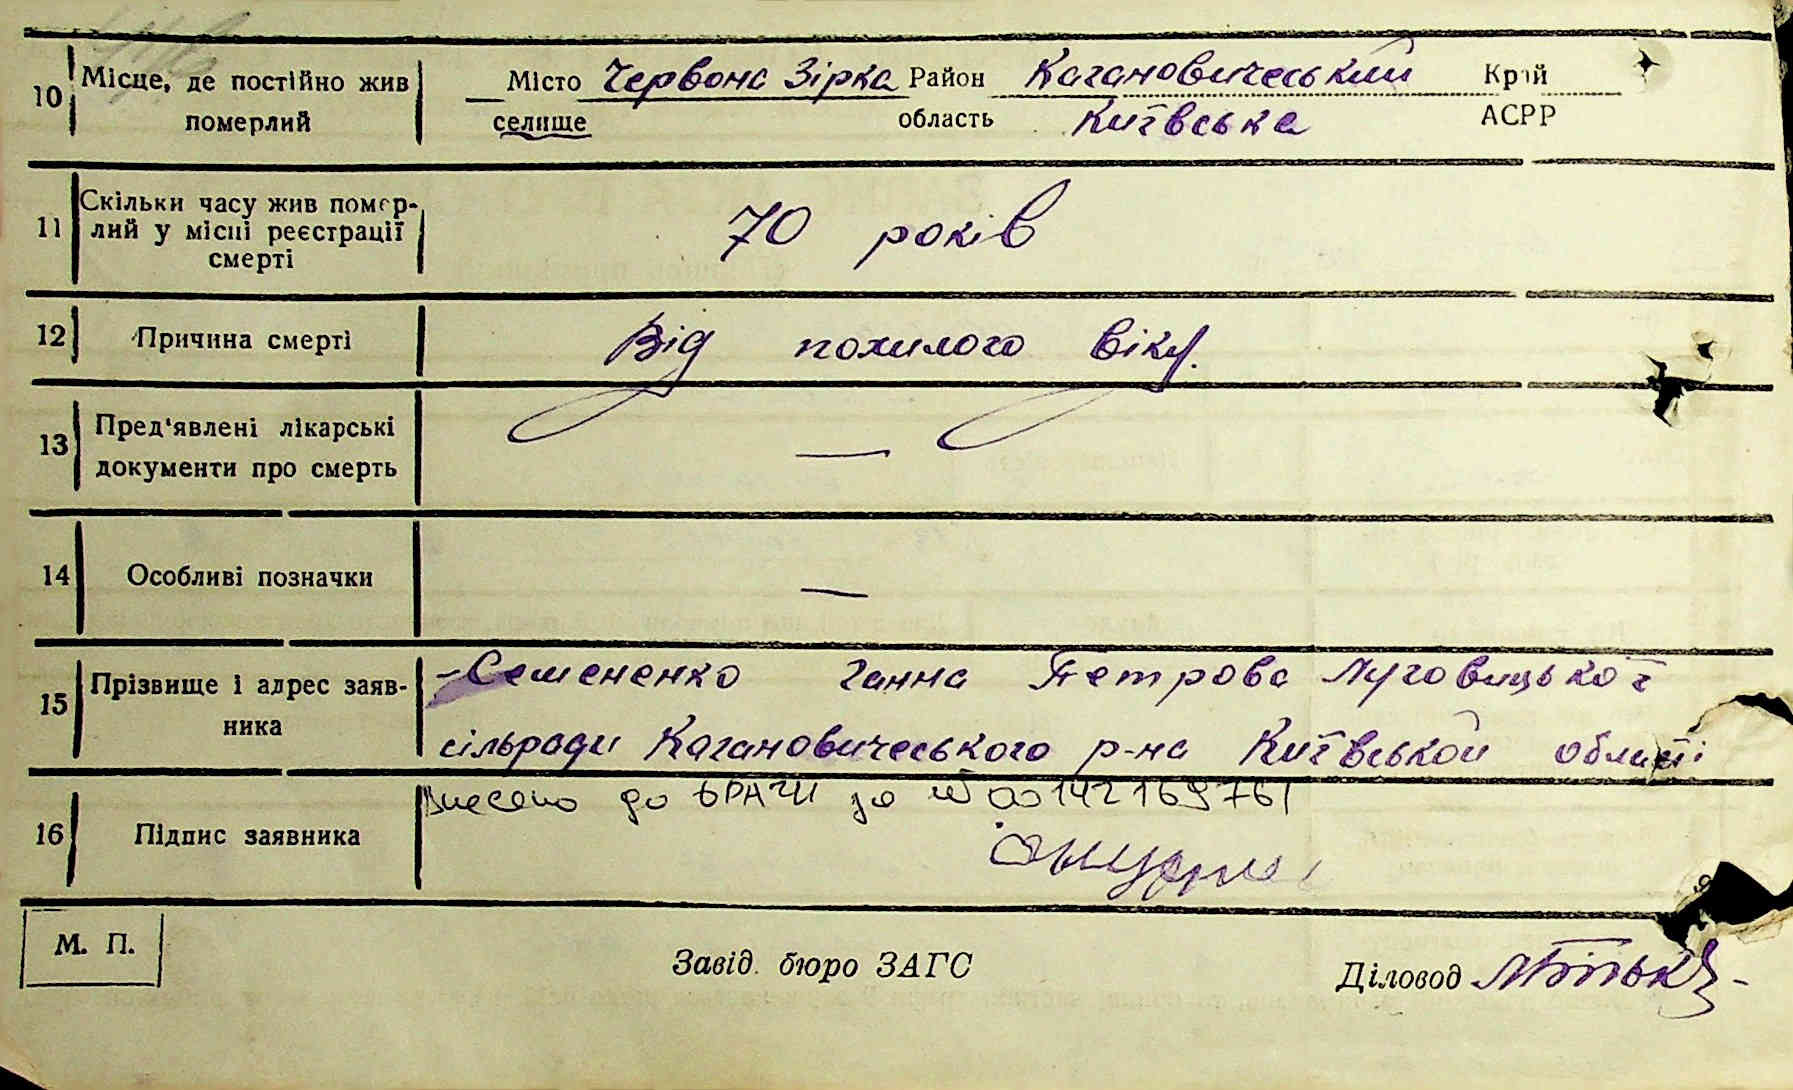 10 Місце, де постійно жив Місто Червона Зірка Район Кагановичеський Край
померлий селище область Київська АСРР
11 Скільки часу жив помер-
лий у місці реєстрації 70 років
смерті
12 Причина смерті Від похилого віку.
13 Пред'явлені лікарські
документи про смерть —
14 Особливі позначки —
15 Прізвище і адрес заяв- Семененко Ганна Петрова Луговицької
ника сільради Кагановичеського р-на Київськой області
Внесено до ДРАЦС за № 00142169761
16 Підпис заявника
М. П. Завід. бюро ЗАГС Діловод